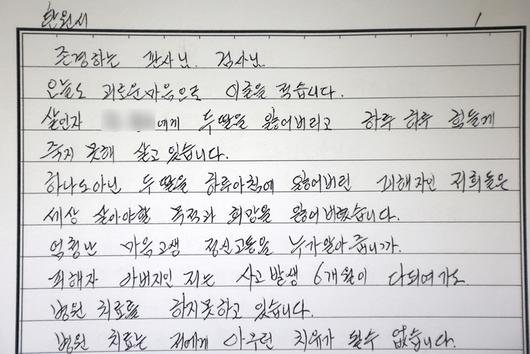 탄원서
1
존경하는 판사님. 검사님.
오늘도 괴로운마음으로 이글을 적습니다.
살인자 에게 두딸을 잃어버리고 하루 하루 힘들게
죽지 못해 살고 있습니다.
하나도아닌 두딸을 하루아침에 잃어버린 피해자인 저희들은
세상 살아야할 목적과 희망을 잃어 버렸습니다.
엄청난 마음고생 정신고통을 누가알아 줍니까.
피해자 아버지인 저는 사고발생 6개월이 다되여가도
병원 치료를 하지못하고 있습니다.
병원 치료는 저에게 아무런 치유가 될수 없습니다.